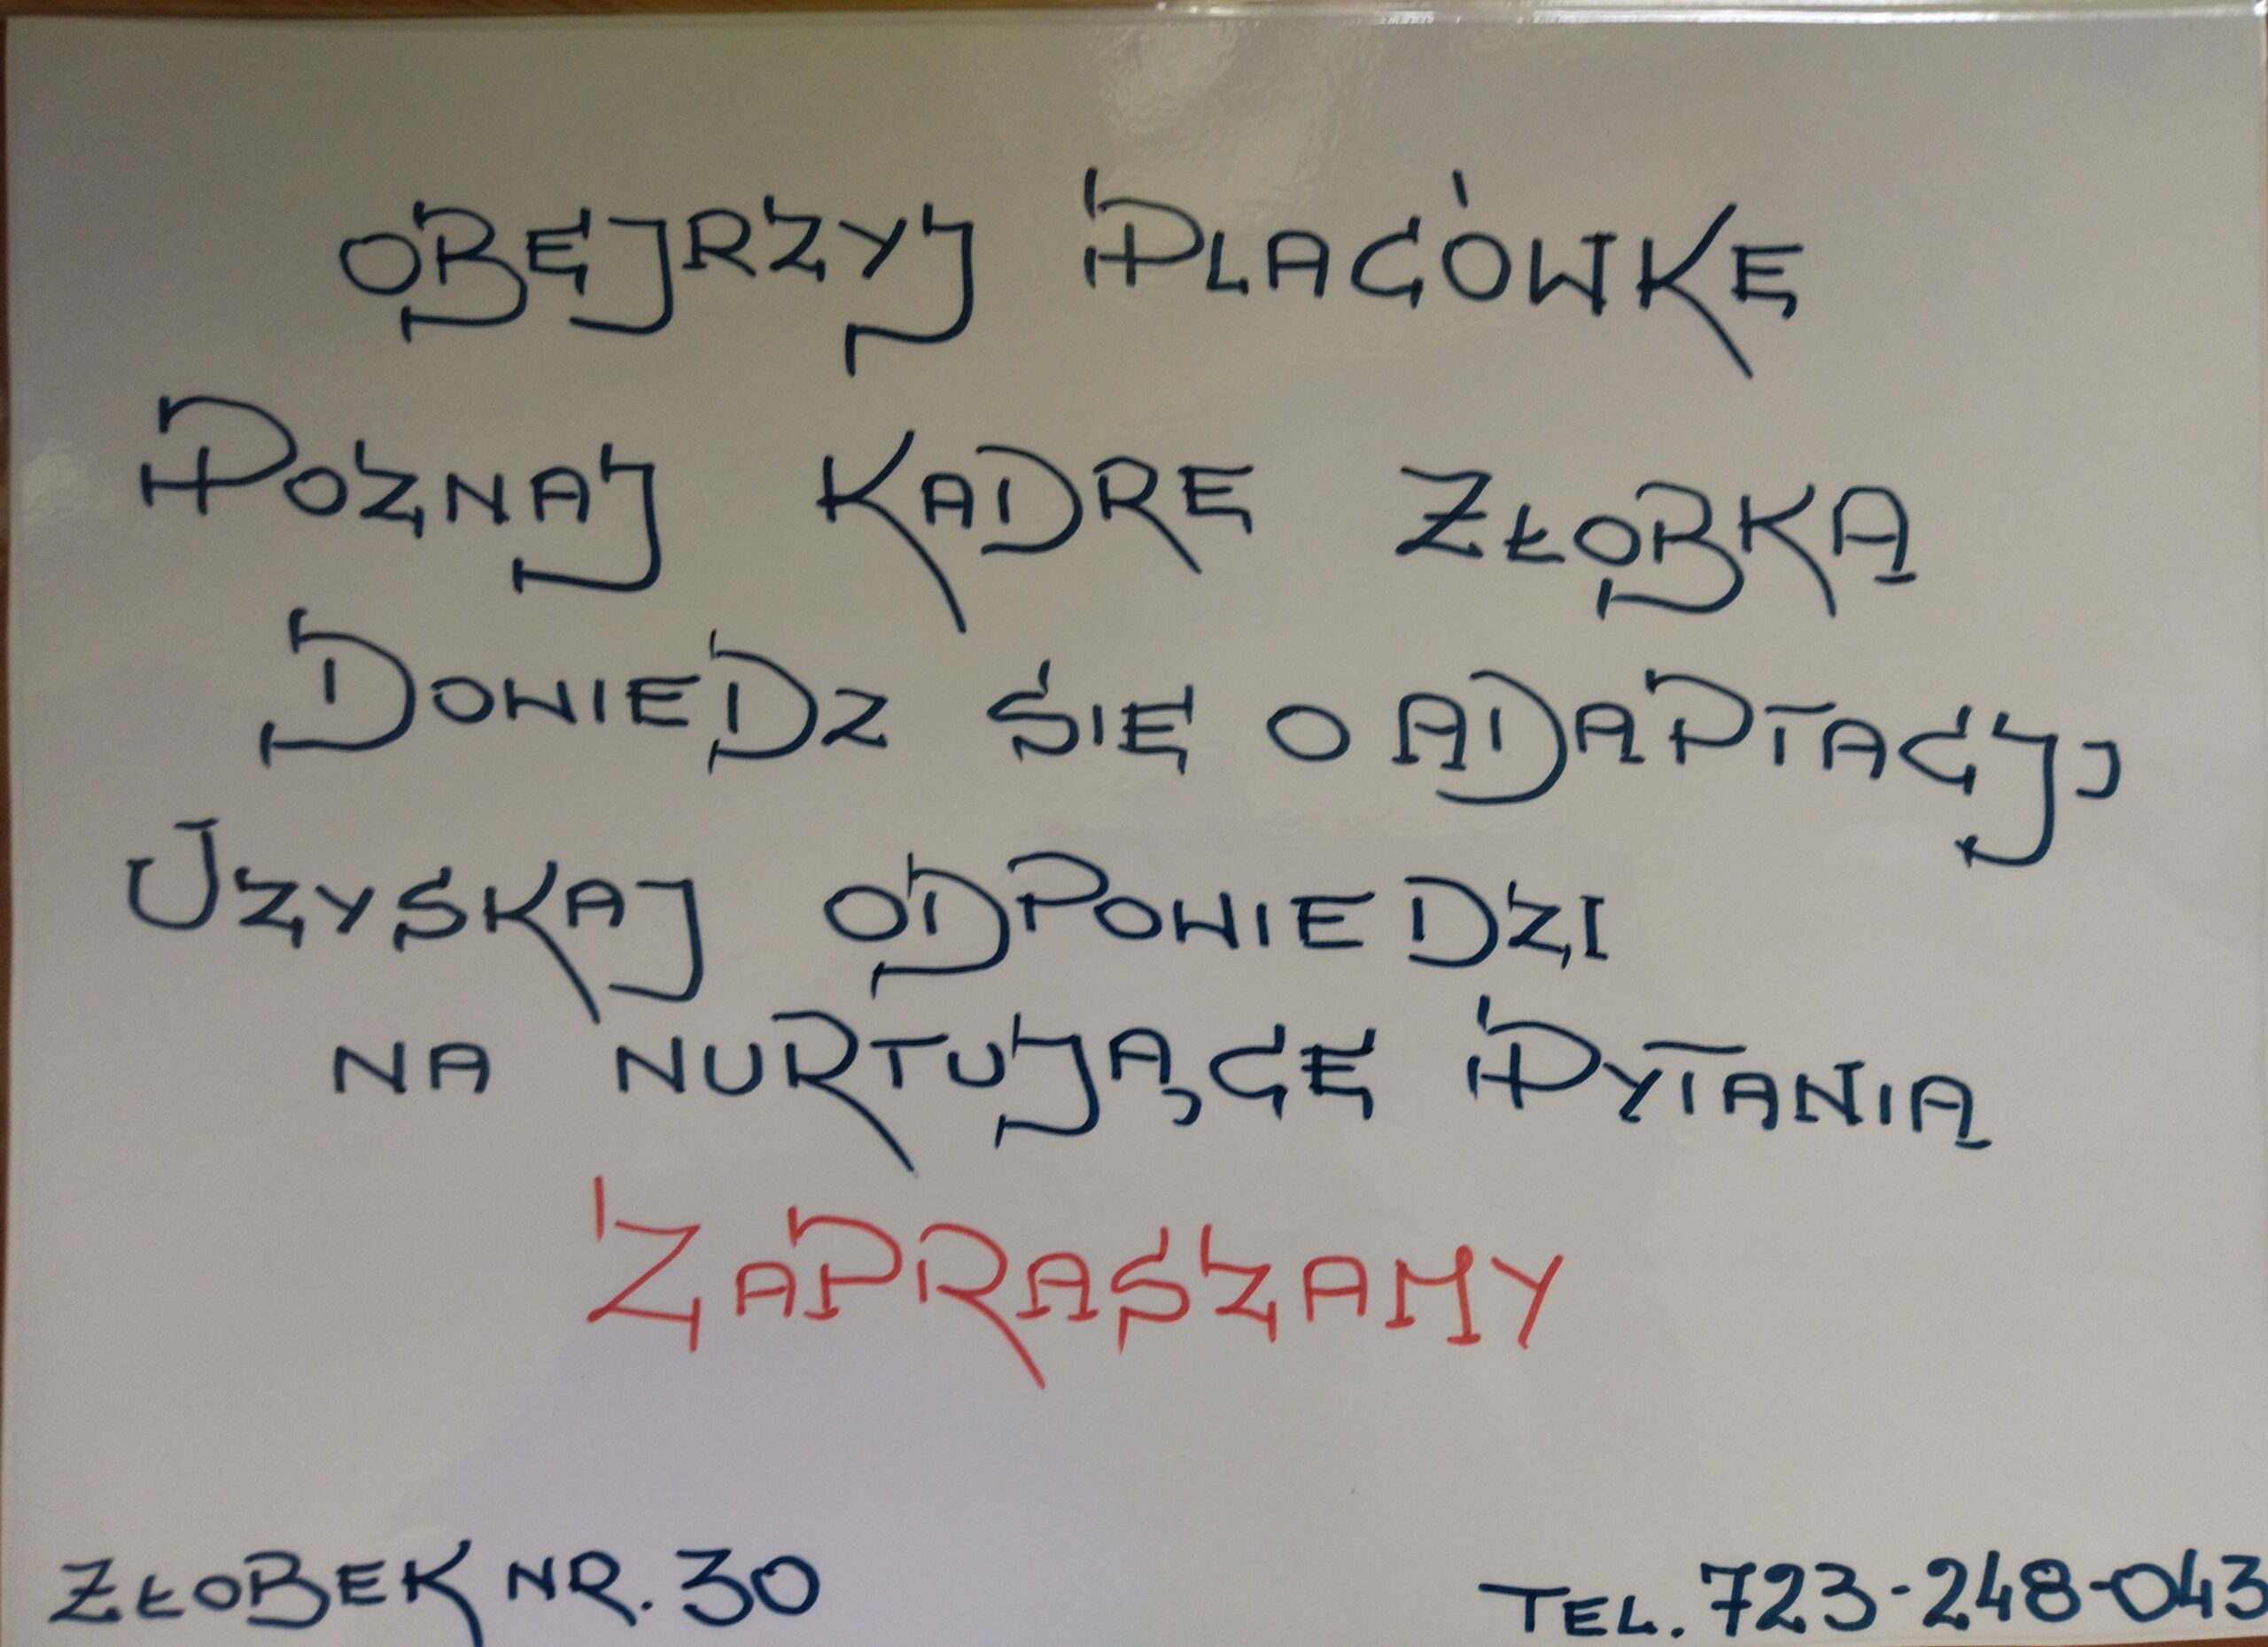 OBEJRZYJ PLACÓWKE
POZNAJ KADRE ZŁOBKA
DOWIEDZ SIE O ADAPTACYJ
UZYSKAJ ODPOWIEDZI
NA NURTUJĄCE PYTANIA
ZAPRASZAMY
ZŁOBEK NR. 30
TEL. 723-248-043